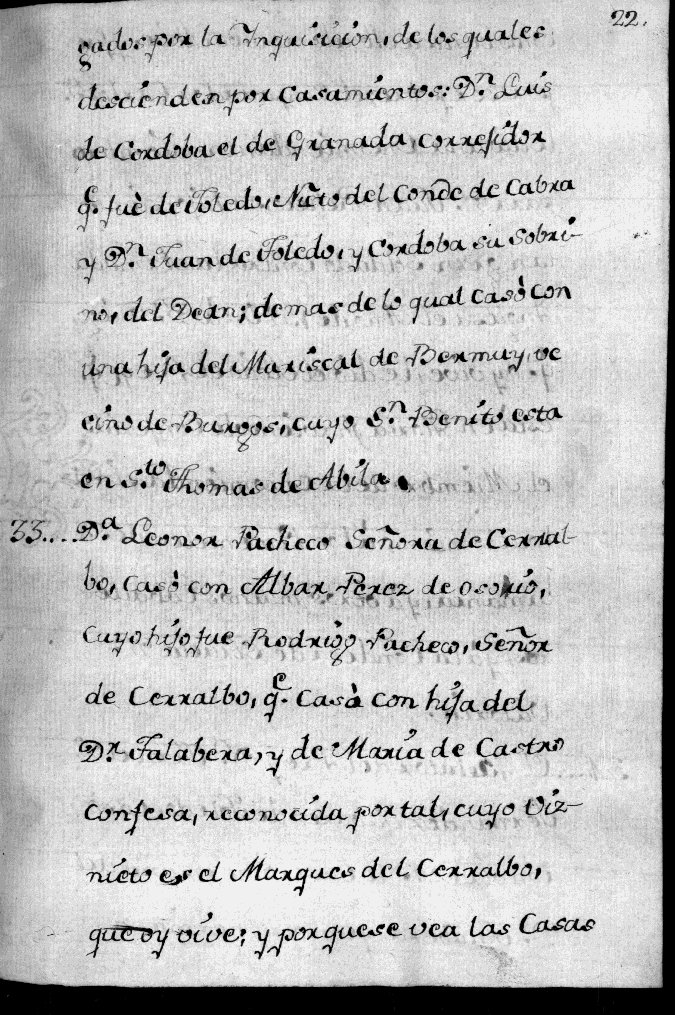 22.
gados por la Inquisicion, de los quales
descienden por Casamientos: D.n Luis
de Cordoba el de Granada corregidor
q.e fuè de Toledo, Nieto del Conde de Cabra
y D.n Juan de Toledo, y Cordoba su Sobri-
no, del Dean; demas de lo qual Casò con
una hija del Mariscal de Bermuy, ve
cino de Burgos, cuyo S.n Benito esta
en S.to Thomas de Abila.
33.... D.a Leonor Pacheco Señora de Cerral-
bo, Casò con Albar, Perez de osorio,
Cuyo hijo fue Rodrigo Pacheco, Señor
de Cerralbo, q.e Casò con hija del
D.r Talabera, y de Maria de Castro
Confesa, reconocida por tal, cuyo Viz-
nieto es el Marques del Cerralbo,
que oy vive; y porquese vea las Casas